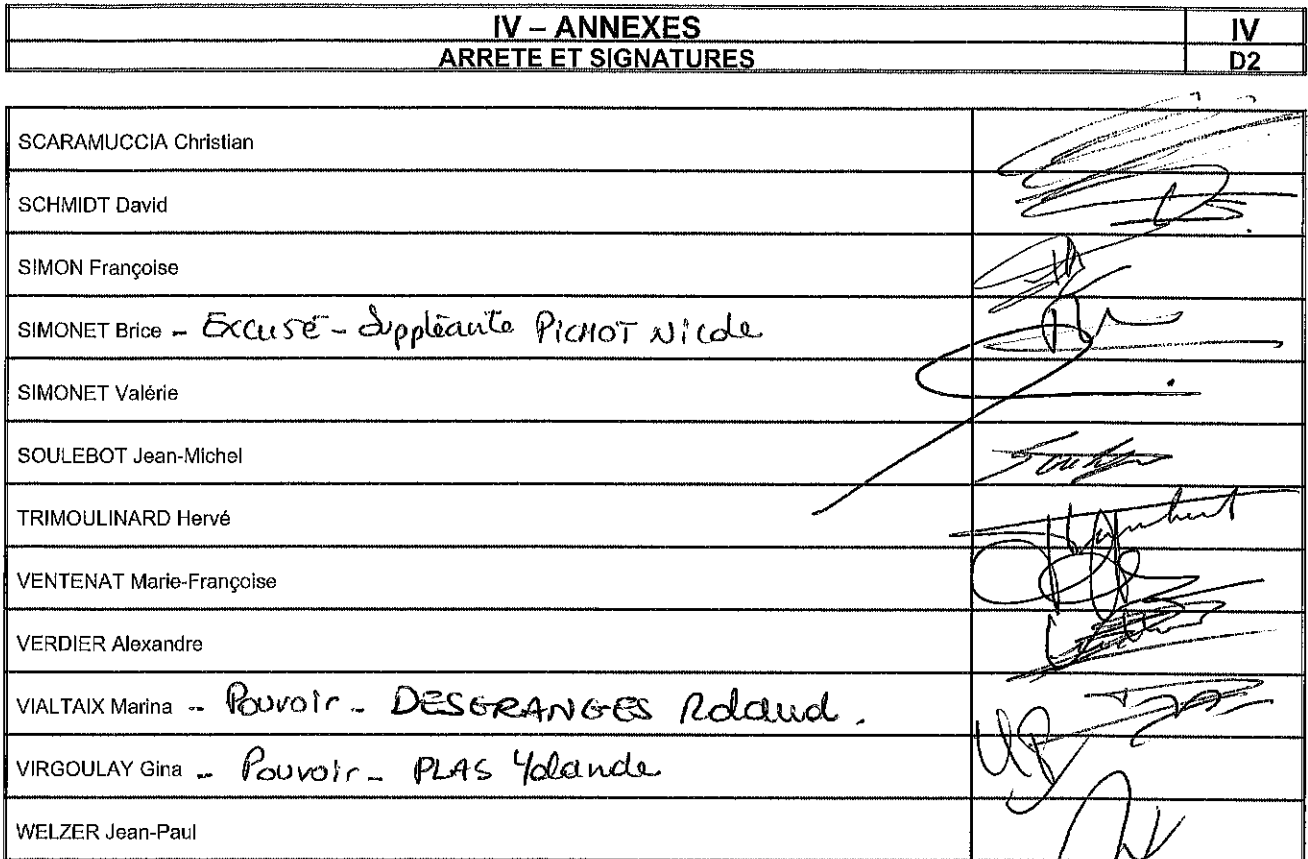 IV – ANNEXES
IV
ARRETE ET SIGNATURES
D2
SCARAMUCCIA Christian
SCHMIDT David
SIMON Françoise
SIMONET Brice - Excusé - Suppléante PICHOT Nicole
SIMONET Valérie
SOULEBOT Jean-Michel
TRIMOULINARD Hervé
VENTENAT Marie-Françoise
VERDIER Alexandre
VIALTAIX Marina - Pouvoir - DESGRANGES Roland.
VIRGOULAY Gina - Pouvoir - PLAS Yolande
WELZER Jean-Paul